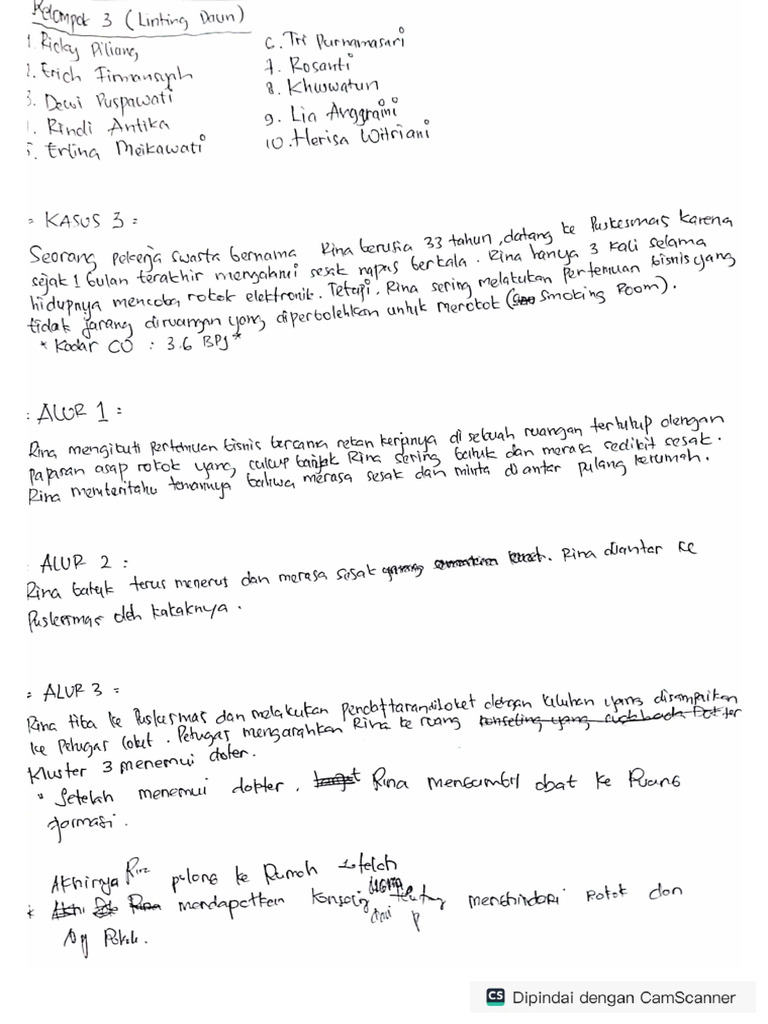 Kelompok 3 (Linting Daun)
1. Ricky Piliang
2. Erich Firmansyah
3. Dewi Puspawati
Rindi Antika
5. Erlina Meikawati
6. Tri Purnamasari
7. Rosanti
8. Khuswatun
9. Lia Anggraini
10. Herisa Witriani
= KASUS 3 =
Seorang pekerja swasta bernama Rina berusia 33 tahun, datang ke Puskesmas karena
sejak 1 bulan terakhir mengalami sesak napas berkala. Rina hanya 3 kali selama
hidupnya mencoba rokok elektronik. Tetapi, Rina sering melakukan pertemuan bisnis yang
tidak jarang diruangan yang diperbolehkan untuk merokok (Smoking Room).
* Kadar CO : 3.6
: ALUR 1 :
Rina mengikuti pertemuan bisnis bersama rekan kerjanya di sebuah ruangan tertutup dengan
paparan asap rokok yang cukup banyak Rina sering batuk dan merasa sedikit sesak.
Rina memberitahu temannya bahwa merasa sesak dan minta di antar pulang kerumah.
ALUR 2 :
Rina batuk terus menerus dan merasa sesak Rina diantar ke
Puskesmas oleh kakaknya.
= ALUR 3 =
Rina tiba ke Puskesmas dan melakukan pendaftaran diloket dengan keluhan yang disampaikan
ke petugas loket. Petugas mengarahkan Rina ke ruang konseling yang Dokter
Kluster 3 menemui dokter.
* Setelah menemui dokter, Rina mengambil obat ke Ruang
farmasi.
Akhirnya Rina pulang ke Rumah setelah
* Rina mendapatkan menghindari rokok dan